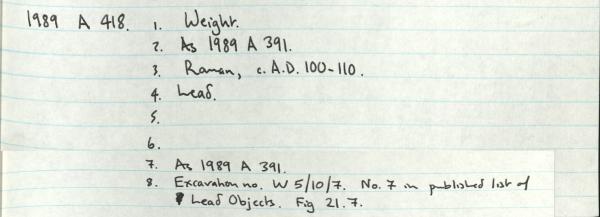 1989 A 418. 1. Weight.
2. As 1989 A 391.
3. Roman, c. A.D. 100-110.
4. Lead.
5.
6.
7. As 1989 A 391.
8. Excavation no. W 5/10/7. No. 7 in published list of
Lead Objects. Fig 21.7.